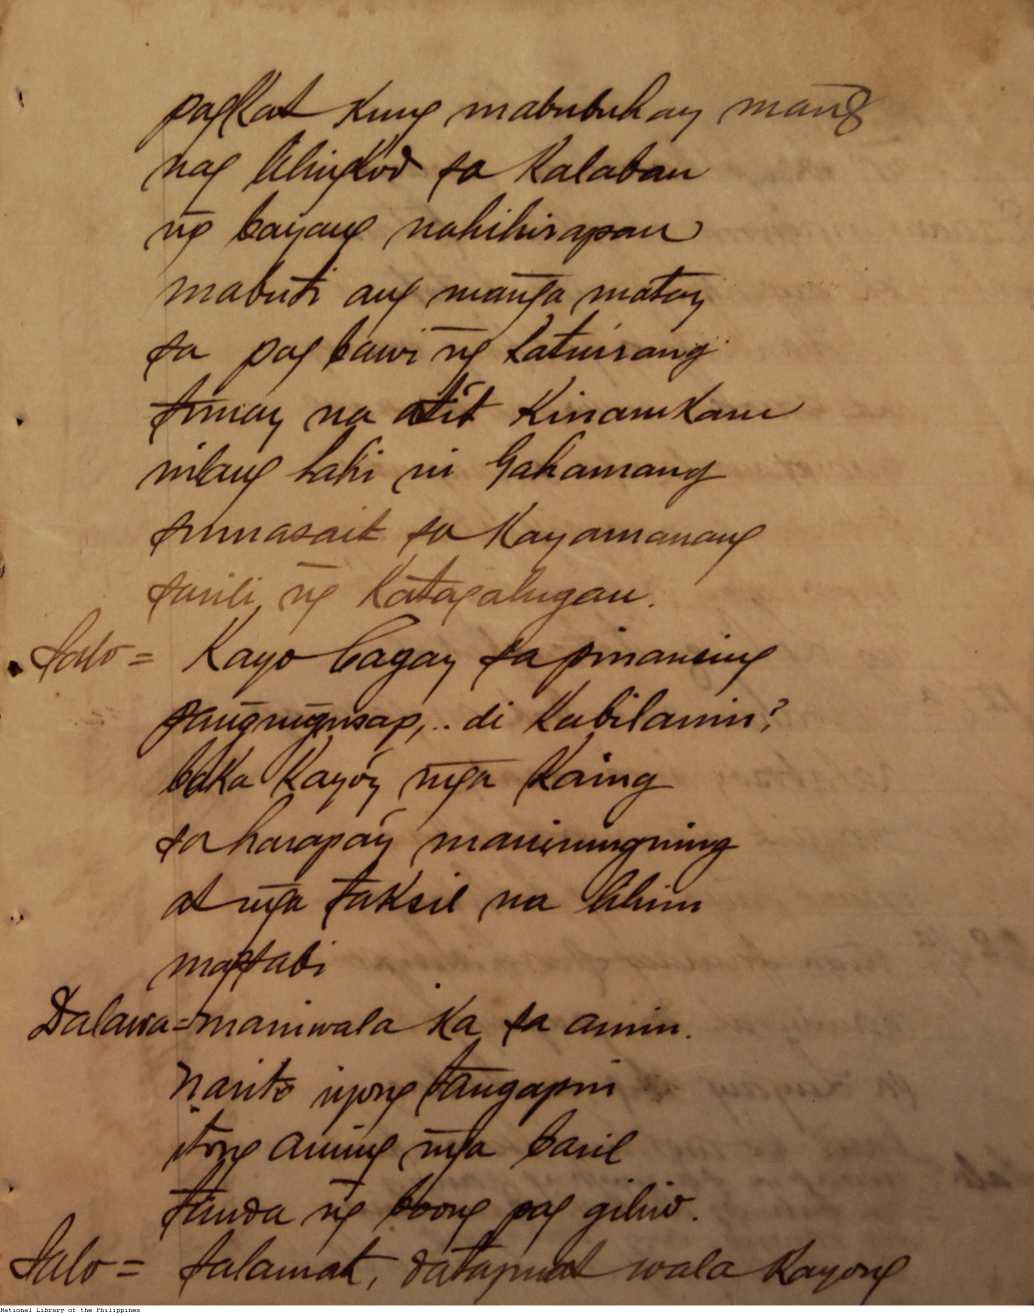 pagkat kung mabubuhay mang
nag lilingkod sa kalaban
ng̃ bayang nahihirapan
mabuti ang mang̃a matay
sa pag bawi ng̃ katuirang
tunay na atít kinamkam
nilang lahi ni Gahamang
sumasait sa kayamanang
sarili ng̃ Katagalugan.
Salo= Kayo bagay sa
pang̃ung̃usap,.. di kabilanin?
baka kayóy mg̃a
sa harapáy maniningning
at mg̃a taksil na lihim
magsabi
Dalawa=maniwala ka sa amin.
Narito inyong tangapin
itong aming mg̃a baril
tanda ng̃ boong pag giliw.
Salo= Salamat, datapuat wala kayong
National Library of the Philippines